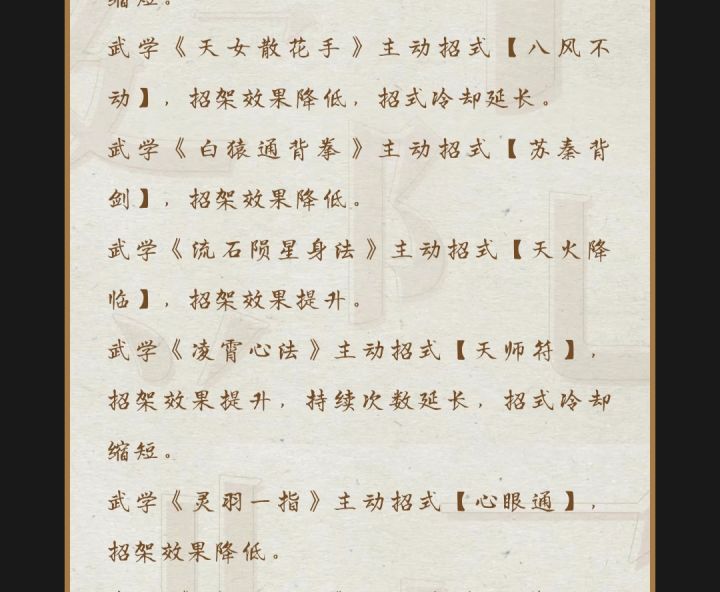 缩短。
武学《天女散花手》主动招式【八风不
动】，招架效果降低，招式冷却延长。
武学《白猿通背拳》主动招式【苏秦背
剑】，招架效果降低。
武学《流石陨星身法》主动招式【天火降
临】，招架效果提升。
武学《凌霄心法》主动招式【天师符】，
招架效果提升，持续次数延长，招式冷却
缩短。
武学《灵羽一指》主动招式【心眼通】，
招架效果降低。